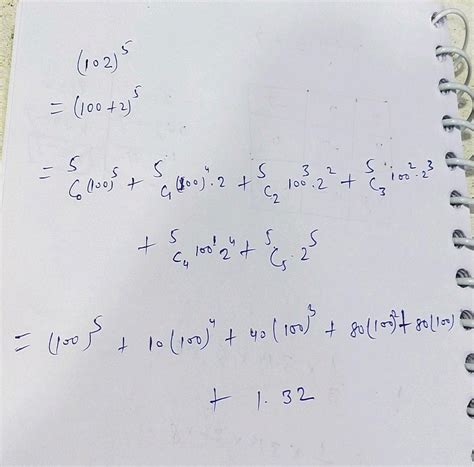 (102)⁵
= (100+2)⁵
= ⁵C₀(100)⁵ + ⁵C₁(100)⁴·2 + ⁵C₂ 100³·2² + ⁵C₃ 100²·2³
+ ⁵C₄ 100¹ 2⁴ + ⁵C₅·2⁵
= (100)⁵ + 10(100)⁴ + 40(100)³ + 80(100)² + 80(100)
+ 1.32